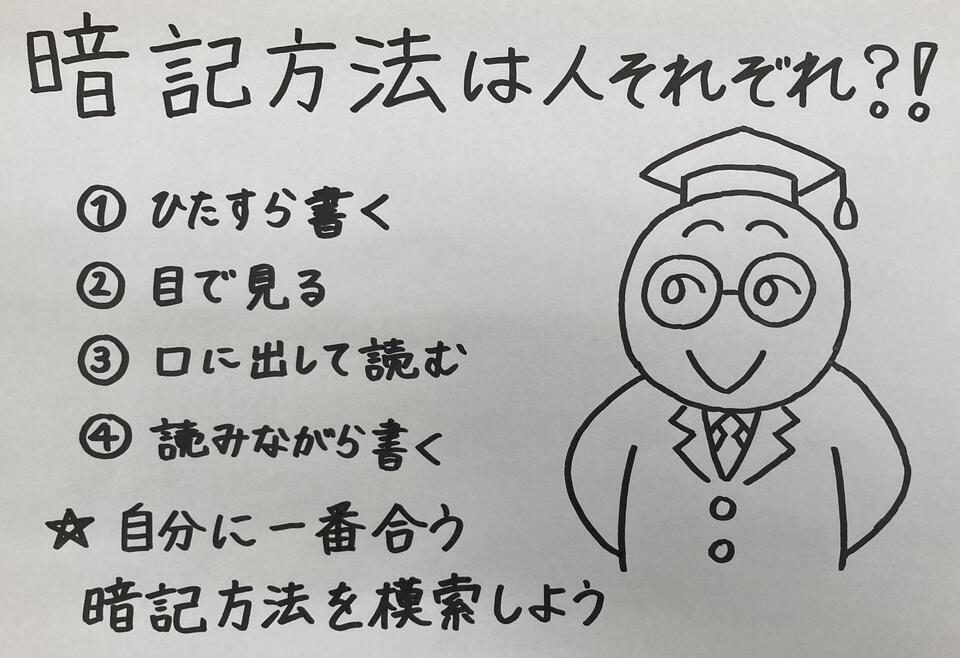 暗記方法は人それぞれ?!
① ひたすら書く
② 目で見る
③ 口に出して読む
④ 読みながら書く
☆ 自分に一番合う
暗記方法を模索しよう